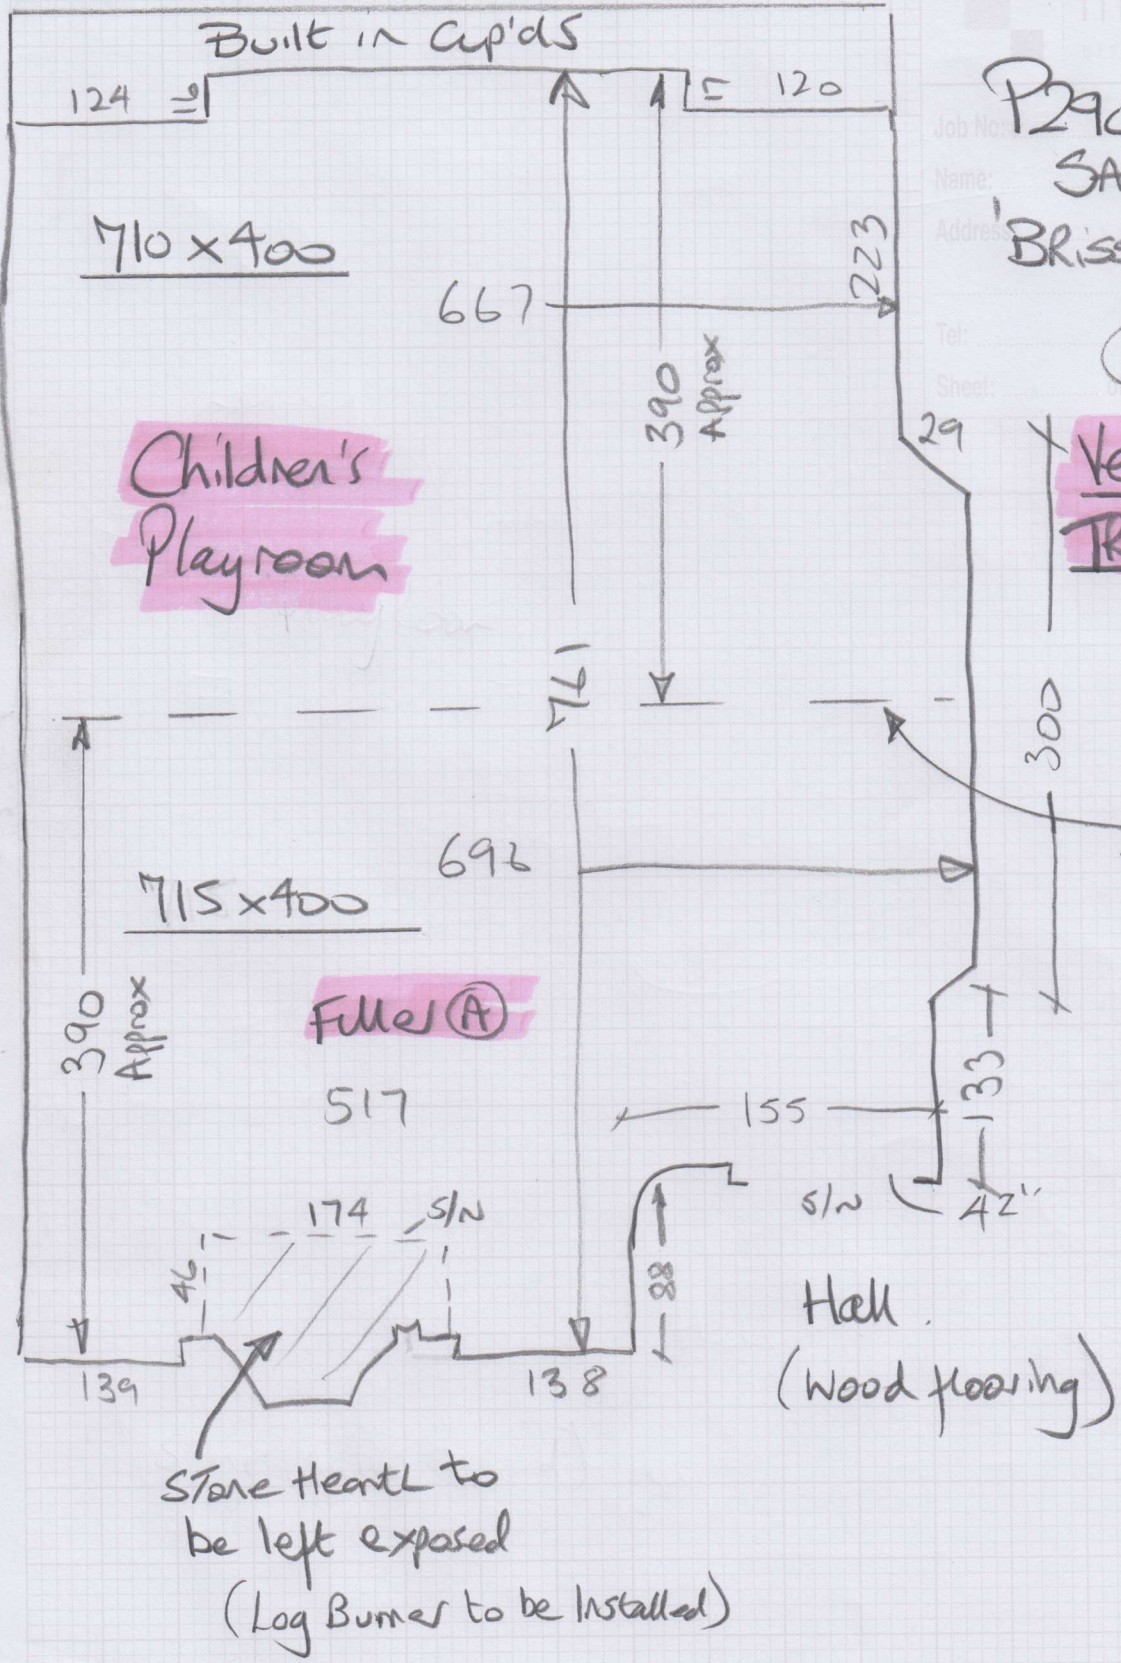 Built in Cup'ds
124
120
Job No:
P29
Name:
SA
Address
'BRISS
710 x 400
223
667
Tel:
390
Approx
Sheet:
29
Children's
Playroom
761
300
696
715 x 400
390
Approx
Filler A
517
155
133
174
S/N
S/N
42"
46
88
Hall.
139
138
(Wood flooring)
Stone Hearth to
be left exposed
(Log Burner to be Installed)